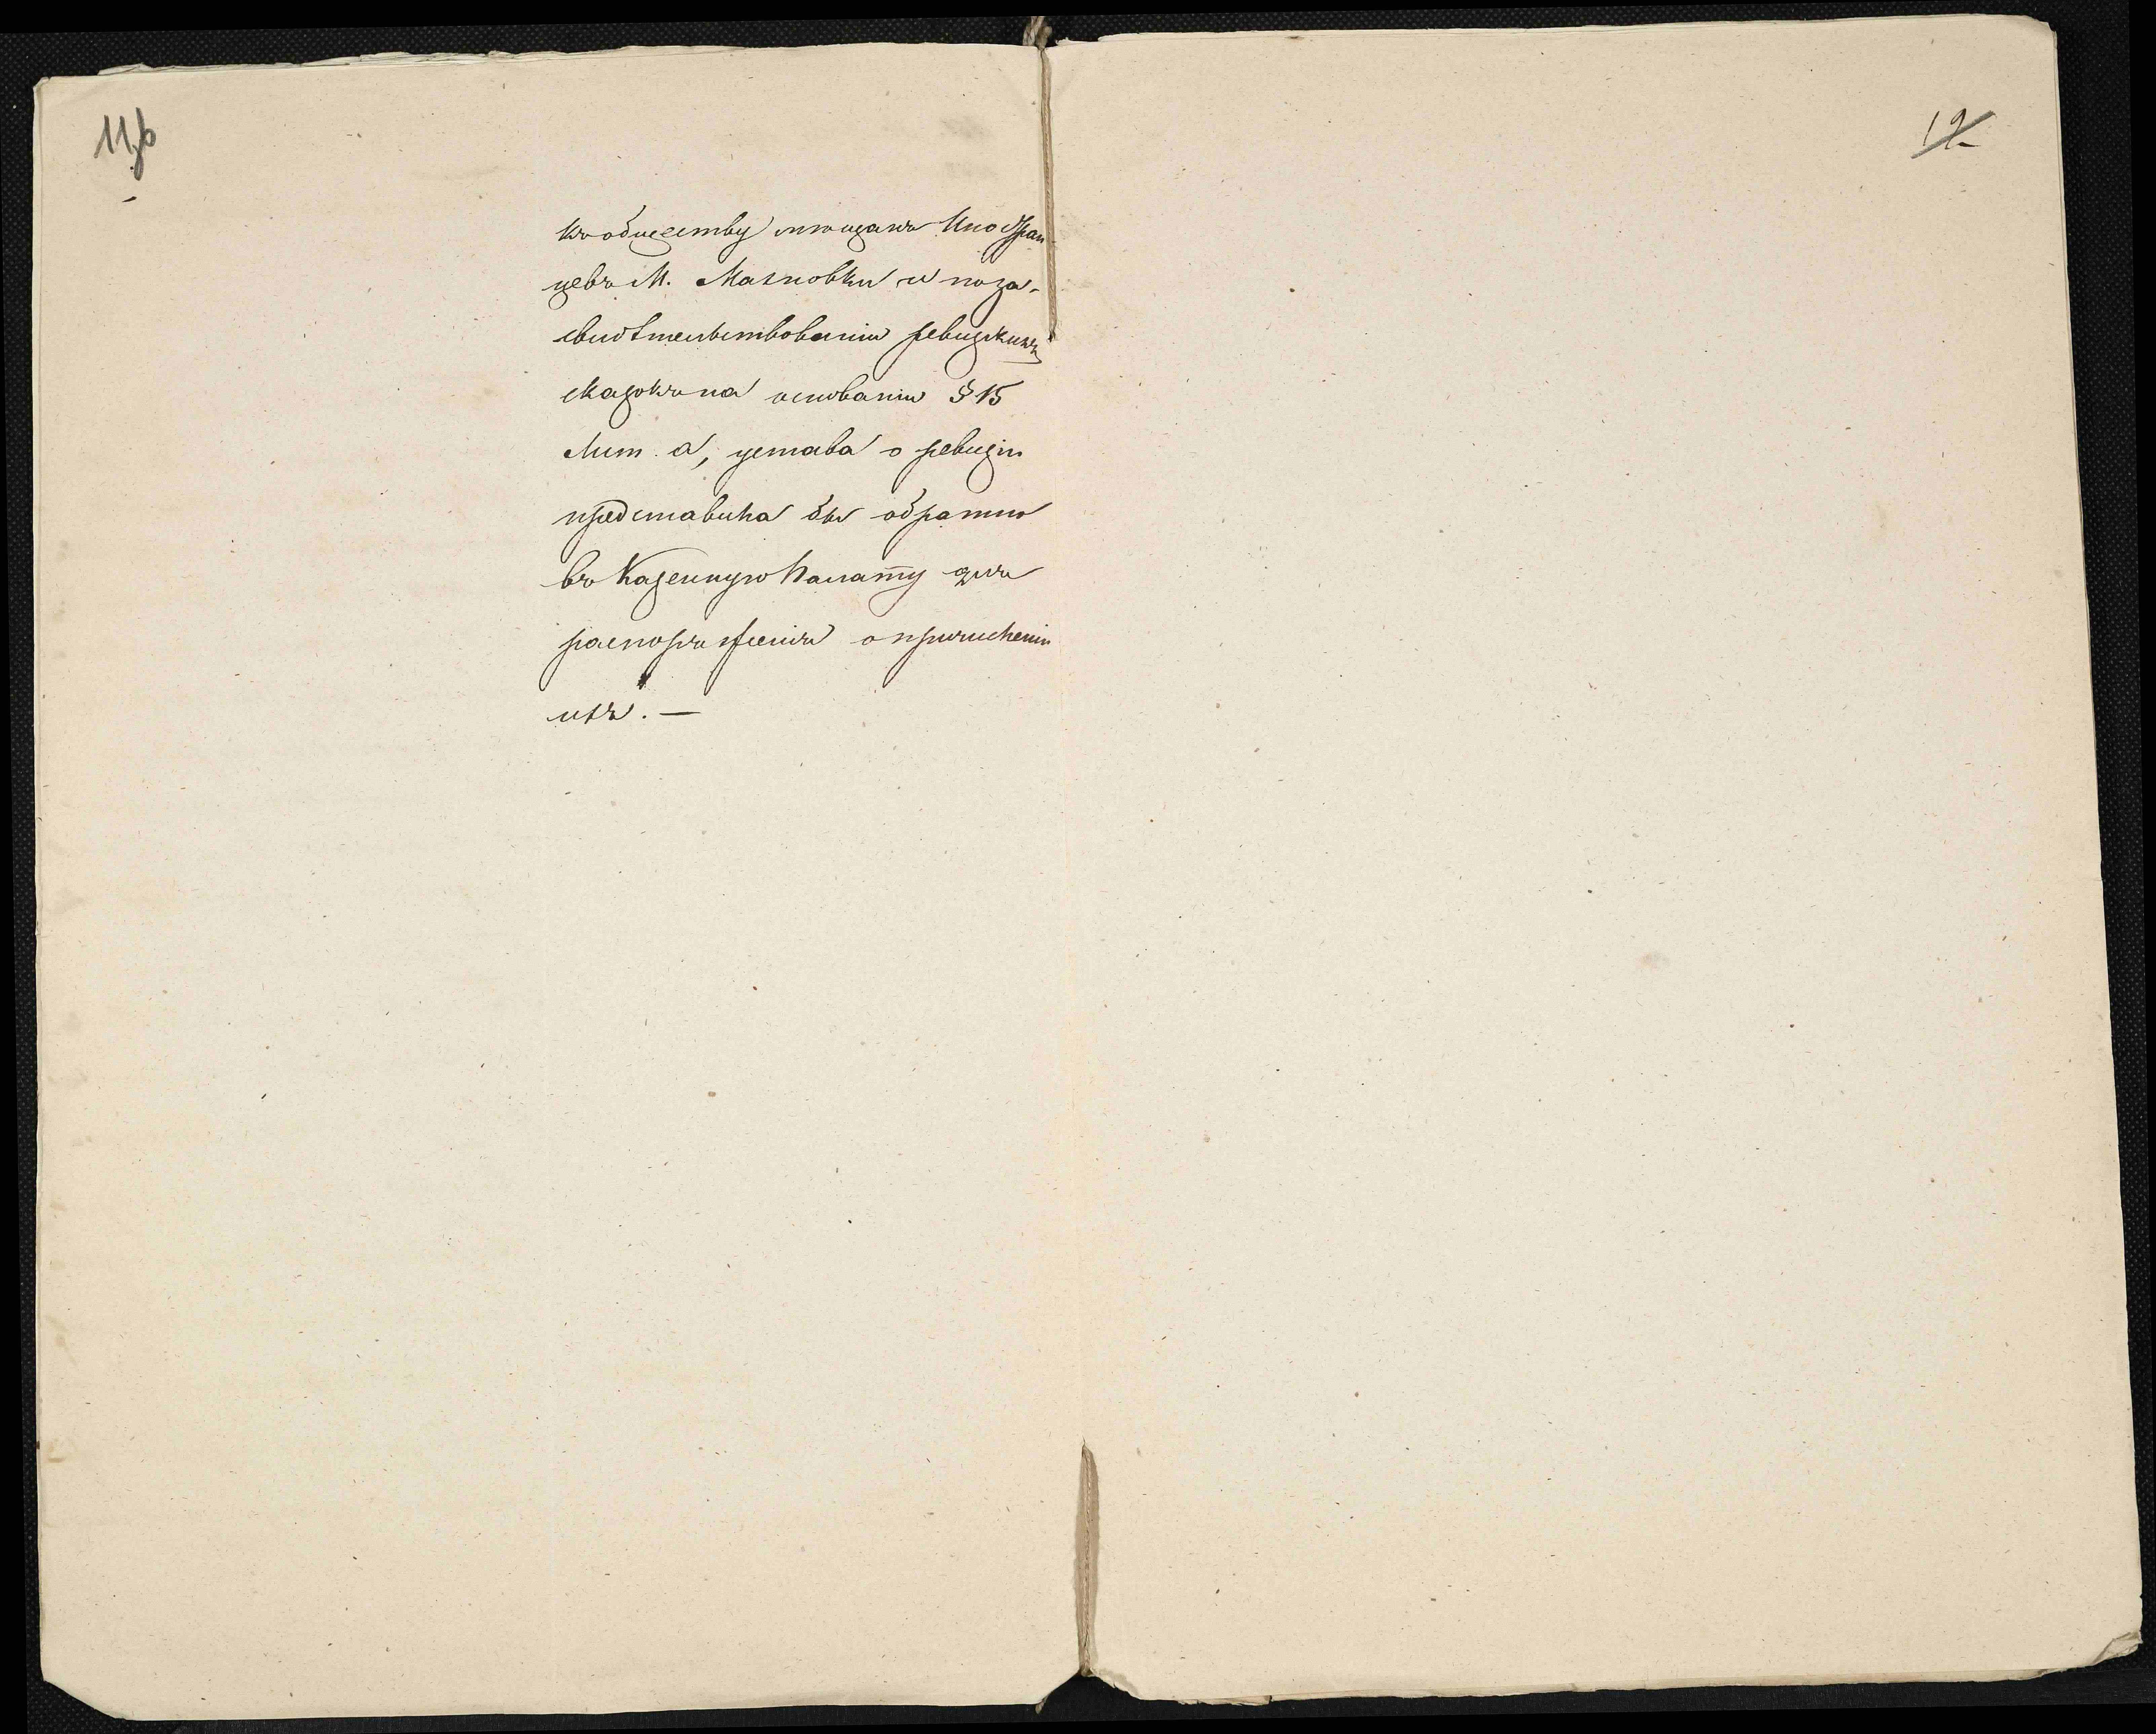 11об
12
къ обществу мѣщанъ Иностран
цевъ М. Махновки и поза-
свидѣтельствованіи ревизскихъ
сказокъ на основаніи § 15
Лит. а, устава о ревизіи
представила бы обратно
въ Казенную Палату для
распоряженія о причисленіи
ихъ. —